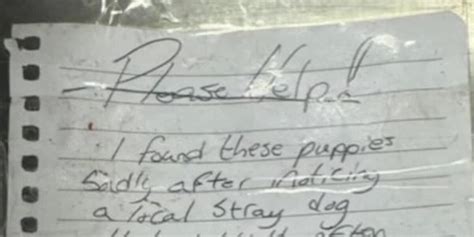 - Please Help!
I found these puppies
Sadly after noticing
a local Stray dog